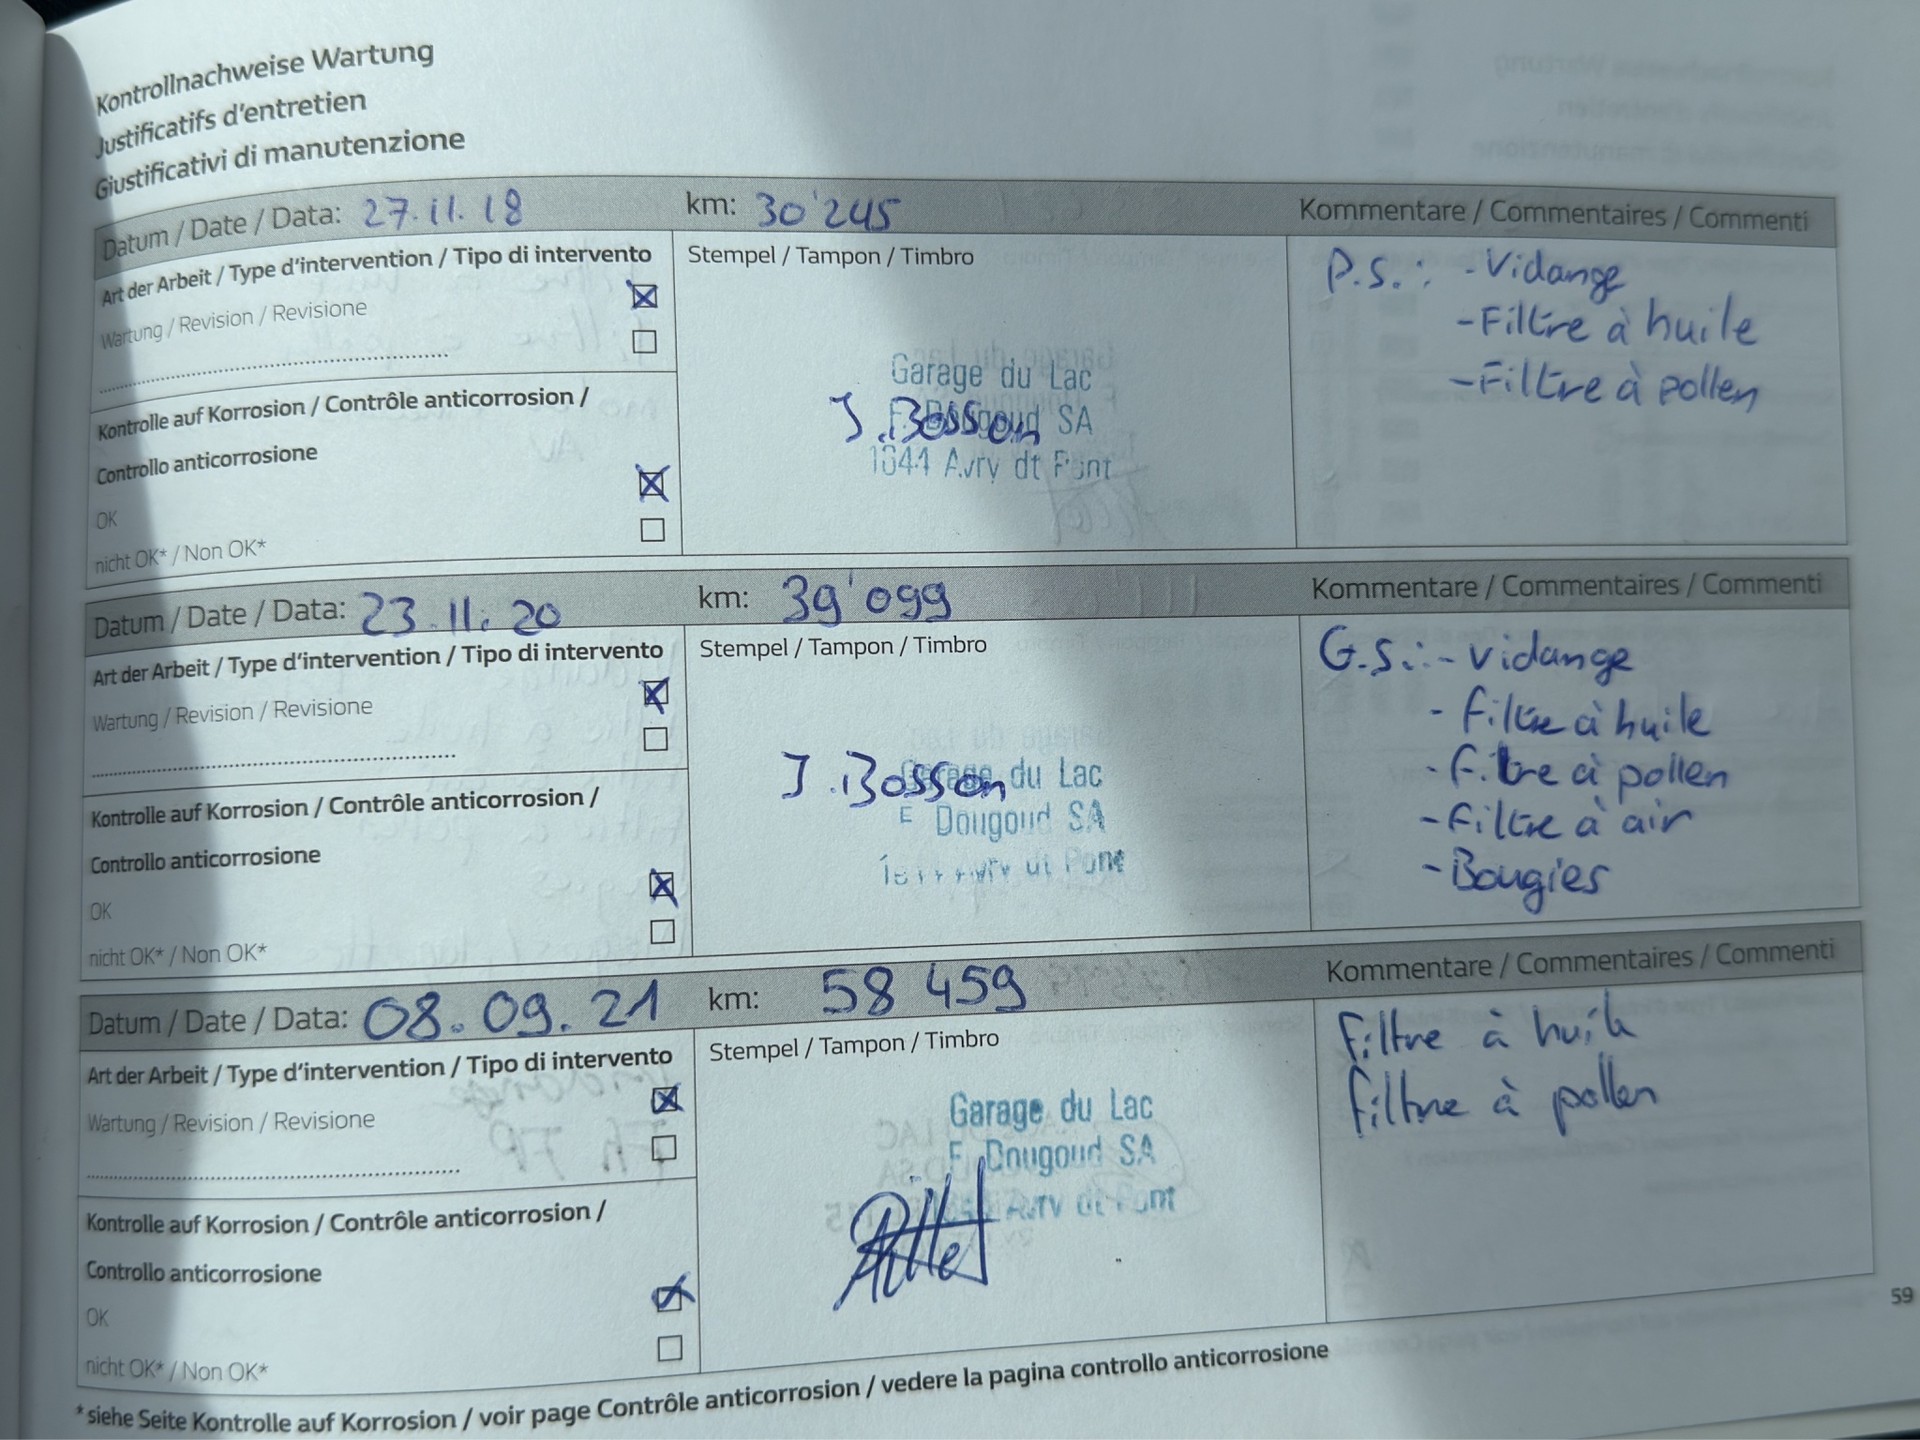 Kontrollnachweise Wartung
Justificatifs d'entretien
Giustificativi di manutenzione
Datum / Date / Data: 27.11.18 km: 30'245 Kommentare / Commentaires / Commenti
Art der Arbeit / Type d'intervention / Tipo di intervento
Wartung / Revision / Revisione
Kontrolle auf Korrosion / Contrôle anticorrosion /
Controllo anticorrosione
OK
nicht OK* / Non OK*
Stempel / Tampon / Timbro
Garage du Lac
J. Bosson SA
1644 Avry dt Pont
P.S.: - Vidange
- Filtre à huile
- Filtre à pollen
Datum / Date / Data: 23.11.20 km: 39'099 Kommentare / Commentaires / Commenti
Art der Arbeit / Type d'intervention / Tipo di intervento
Wartung / Revision / Revisione
Kontrolle auf Korrosion / Contrôle anticorrosion /
Controllo anticorrosione
OK
nicht OK* / Non OK*
Stempel / Tampon / Timbro
J. Bosson
Garage du Lac
E Dougoud SA
dt Pont
G.S.: - Vidange
- Filtre à huile
- Filtre à pollen
- Filtre à air
- Bougies
Datum / Date / Data: 08.09.21 km: 58 459 Kommentare / Commentaires / Commenti
Art der Arbeit / Type d'intervention / Tipo di intervento
Wartung / Revision / Revisione
Kontrolle auf Korrosion / Contrôle anticorrosion /
Controllo anticorrosione
OK
nicht OK* / Non OK*
Stempel / Tampon / Timbro
Garage du Lac
Dougoud SA
Avry dt Pont
Filtre à huile
Filtre à pollen
59
* siehe Seite Kontrolle auf Korrosion / voir page Contrôle anticorrosion / vedere la pagina controllo anticorrosione